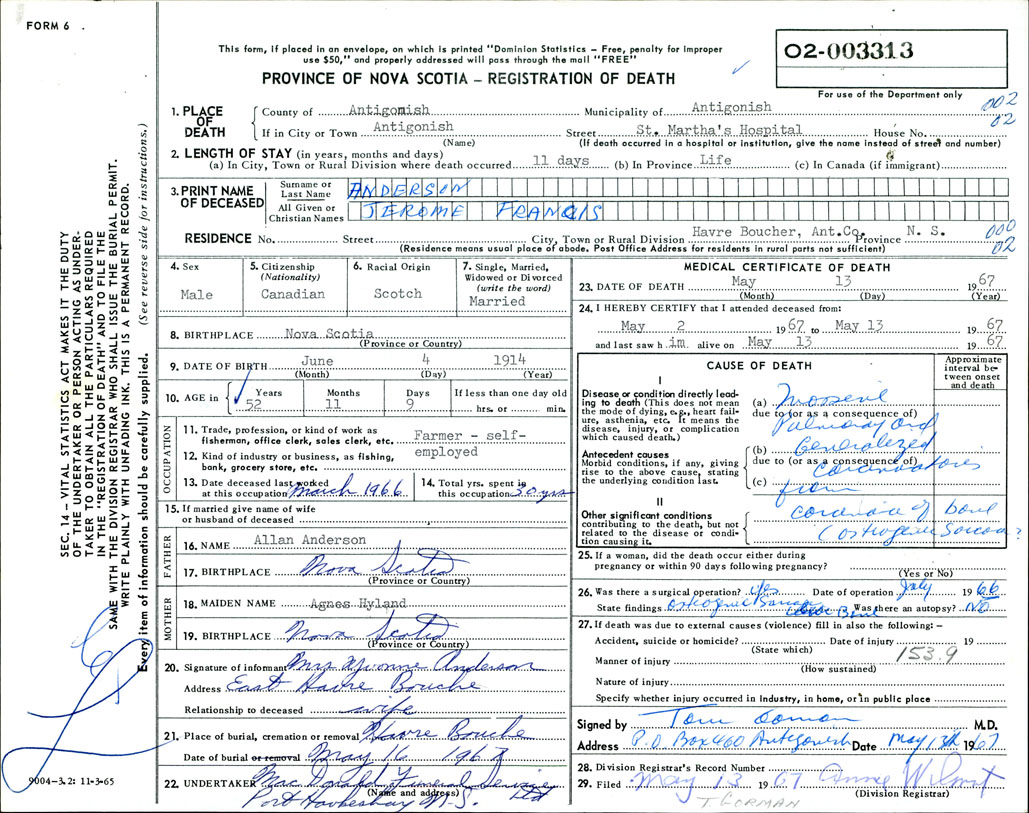 FORM 6 .
This form, if placed in an envelope, on which is printed "Dominion Statistics – Free, penalty for improper
use $50," and properly addressed will pass through the mail "FREE"
PROVINCE OF NOVA SCOTIA – REGISTRATION OF DEATH
O2-003313
For use of the Department only
002
02
1. PLACE OF DEATH
County of Antigonish Municipality of Antigonish
If in City or Town Antigonish Street St. Martha's Hospital House No.
(Name) (If death occurred in a hospital or institution, give the name instead of street and number)
2. LENGTH OF STAY (in years, months and days)
(a) In City, Town or Rural Division where death occurred 11 days (b) In Province Life (c) In Canada (if immigrant)
3. PRINT NAME OF DECEASED
Surname or Last Name ANDERSON
All Given or Christian Names JEROME FRANCIS
RESIDENCE No. Street City, Town or Rural Division Havre Boucher, Ant.Co. Province N. S.
(Residence means usual place of abode. Post Office Address for residents in rural parts not sufficient)
000
02
4. Sex
Male
5. Citizenship
(Nationality)
Canadian
6. Racial Origin
Scotch
7. Single, Married,
Widowed or Divorced
(write the word)
Married
8. BIRTHPLACE Nova Scotia
(Province or Country)
9. DATE OF BIRTH June 4 1914
(Month) (Day) (Year)
10. AGE in Years Months Days If less than one day old
52 11 9 hrs. or min.
OCCUPATION
11. Trade, profession, or kind of work as
fisherman, office clerk, sales clerk, etc. Farmer - self-
employed
12. Kind of industry or business, as fishing,
bank, grocery store, etc.
13. Date deceased last worked
at this occupation March 1966
14. Total yrs. spent in
this occupation 30 yrs
15. If married give name of wife
or husband of deceased
FATHER
16. NAME Allan Anderson
17. BIRTHPLACE Nova Scotia
(Province or Country)
MOTHER
18. MAIDEN NAME Agnes Hyland
19. BIRTHPLACE Nova Scotia
(Province or Country)
20. Signature of informant Mrs Yvonne Anderson
Address East Havre Bouche
Relationship to deceased wife
21. Place of burial, cremation or removal Havre Bouche
Date of burial or removal May 16 1967
22. UNDERTAKER MacDonald Funeral Service Ltd
(Name and address)
Port Hawkesbury N.S.
MEDICAL CERTIFICATE OF DEATH
23. DATE OF DEATH May 13 1967
(Month) (Day) (Year)
24. I HEREBY CERTIFY that I attended deceased from:
May 2 1967 to May 13 1967
and last saw h im. alive on May 13 1967
CAUSE OF DEATH
Approximate
interval be-
tween onset
and death
I
Disease or condition directly lead-
ing to death (This does not mean
the mode of dying, e.g., heart fail-
ure, asthenia, etc. It means the
disease, injury, or complication
which caused death.)
(a) Massive
due to (or as a consequence of)
Pulmonary and
Antecedent causes
Morbid conditions, if any, giving
rise to the above cause, stating
the underlying condition last.
(b) Generalized
due to (or as a consequence of)
(c) from
II
Other significant conditions
contributing to the death, but not
related to the disease or condi-
tion causing it.
of bone
(Osteogenic Sarcoma?
25. If a woman, did the death occur either during
pregnancy or within 90 days following pregnancy?
(Yes or No)
26. Was there a surgical operation? yes Date of operation July 1966
State findings Osteogenic Sarcoma Bone Was there an autopsy? NO
27. If death was due to external causes (violence) fill in also the following: –
Accident, suicide or homicide? Date of injury 19
(State which)
153.9
Manner of injury
(How sustained)
Nature of injury
Specify whether injury occurred in industry, in home, or in public place
Signed by Tom Gorman M.D.
Address P.O Box 460 Antigonish Date May 13th 1967
28. Division Registrar's Record Number
29. Filed May 13 1967 Anne Wilmot
(Division Registrar)
T GORMAN
SEC. 14 – VITAL STATISTICS ACT MAKES IT THE DUTY
OF THE UNDERTAKER OR PERSON ACTING AS UNDER-
TAKER TO OBTAIN ALL THE PARTICULARS REQUIRED
IN THE "REGISTRATION OF DEATH" AND TO FILE THE
SAME WITH THE DIVISION REGISTRAR WHO SHALL ISSUE THE BURIAL PERMIT.
WRITE PLAINLY WITH UNFADING INK. THIS IS A PERMANENT RECORD.
Every item of information should be carefully supplied. (See reverse side for instructions.)
9004-3.2: 11-3-65